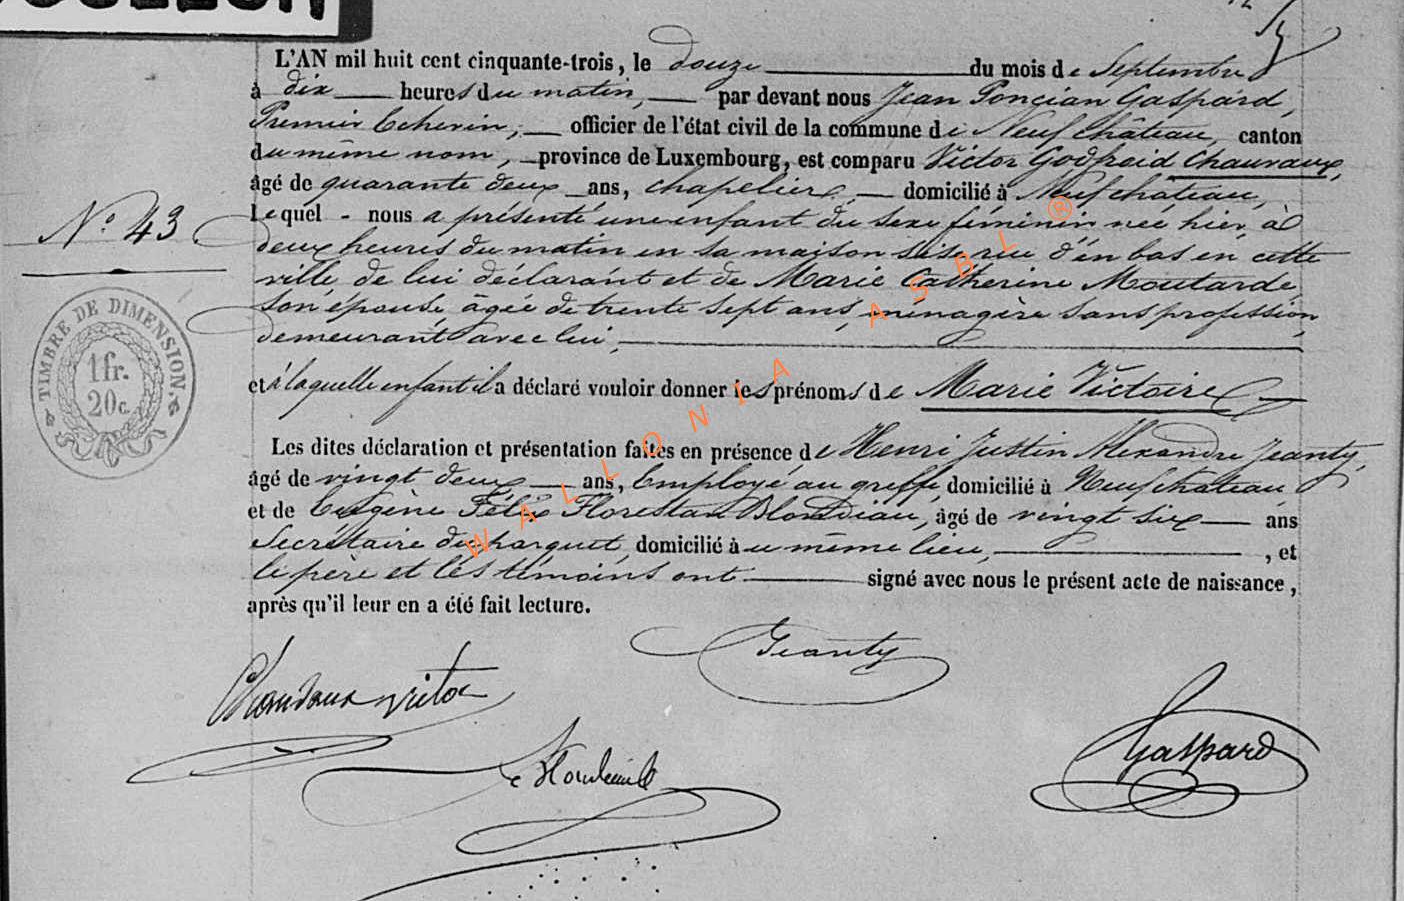 L'AN mil huit cent cinquante-trois, le douze du mois de Septembre
à dix heures du matin, par devant nous Jean Poncian Gaspard,
Premier Echevin, officier de l'état civil de la commune de Neufchâteau, canton
du même nom, province de Luxembourg, est comparu Victor Godfroid Chauvaux,
âgé de quarante deux ans, chapelier, domicilié à Neufchâteau,
Lequel nous a présenté une enfant du sexe féminin née hier, à
N° 43
deux heures du matin en sa maison sise rue d'en bas en cette
ville, de lui déclarant et de Marie Catherine Moutarde,
son épouse, âgée de trente sept ans, ménagère sans profession,
demeurant avec lui,
TIMBRE DE DIMENSION.
1fr.
20c.
et à laquelle enfant il a déclaré vouloir donner les prénoms de Marie Victoire
Les dites déclaration et présentation faites en présence de Henri Justin Alexandre Jeanty,
âgé de vingt deux ans, Employé au greffe, domicilié à Neufchateau
et de Eugène Félix Florestan Blondiau, âgé de vingt six ans
Secrétaire du parquet, domicilié au même lieu, , et
le père et les témoins ont signé avec nous le présent acte de naissance,
après qu'il leur en a été fait lecture.
WALLONIA ASBL ®
Jeanty
Chauvaux Victor
Gaspard